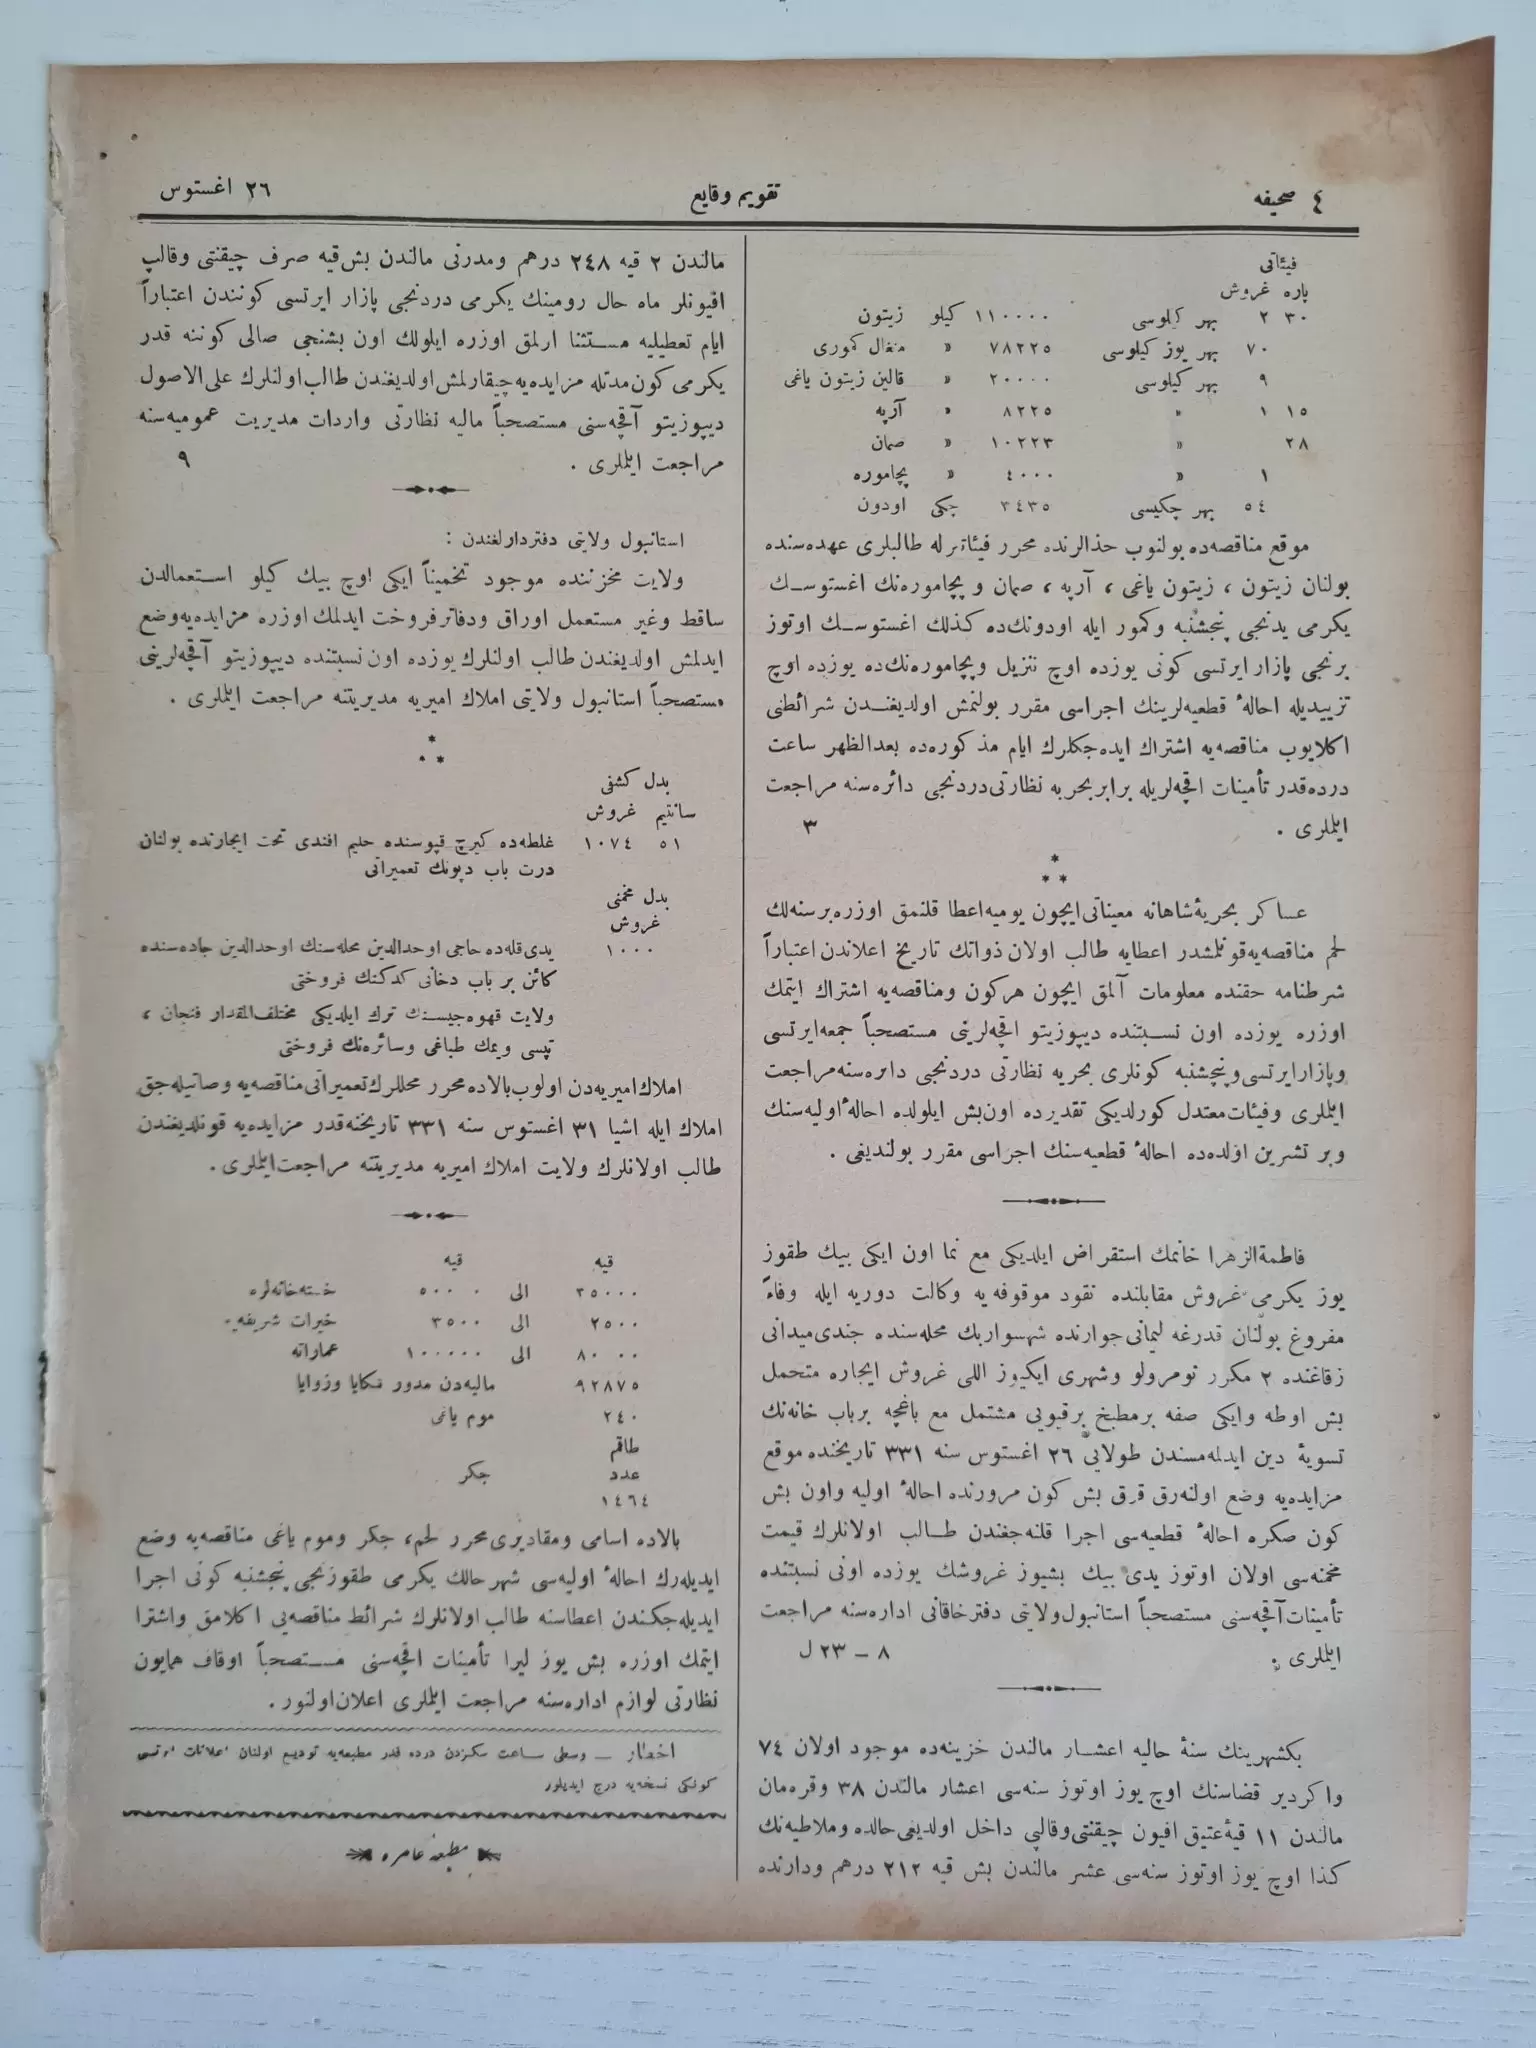 ٤ صحیفه
تقویم وقایع
٢٦ اغستوس
فیئاتی
پاره غروش
٣٠ ٢ بهر کیلوسی ١١٠٠٠٠ کیلو زیتون
٧٠ بهر یوز کیلوسی ٧٨٢٢٥ « منغال کموری
٩ بهر کیلوسی ٢٠٠٠٠ « قالین زیتون یاغی
١٥ ١ « ٨٢٢٥ « آرپه
٢٨ « ١٠٢٢٣ « صمان
١ « ٤٠٠٠ « پچاموره
٥٤ بهر چکیسی ٣٤٣٥ چکی اودون
موقع مناقصه‌ده بولنوب حذالرنده محرر فیئاتله طالبلری عهده‌سنده
بولنان زیتون ، زیتون یاغی ، آرپه ، صمان و پچاموره‌نك اغستوسك
یکرمی یدنجی پنجشنبه وکمور ایله اودونك‌ده كذلك اغستوسك اوتوز
برنجی پازار ایرتسی کونی یوزده اوچ تنزیل وپچاموره‌نك‌ده یوزده اوچ
تزییدیله احالهٔ قطعیه‌لرینك اجراسی مقرر بولنمش اولدیغندن شرائطنی
اکلایوب مناقصه‌یه اشتراك ایده‌جکلرك ایام مذکوره‌ده بعدالظهر ساعت
درده‌قدر تأمینات اقچه‌لریله برابر بحریه نظارتی دردنجی دائره‌سنه مراجعت
ایلملری . ٣
* * *
عساکر بحریهٔ شاهانه معیناتی ایچون یومیه اعطا قلنمق اوزره برسنه‌لك
لحم مناقصه‌یه قونلمشدر اعطایه طالب اولان ذواتك تاریخ اعلاندن اعتباراً
شرطنامه حقنده معلومات آلمق ایچون هرکون ومناقصه‌یه اشتراك ایتمك
اوزره یوزده اون نسبتنده دیپوزیتو اقچه‌لرینی مستصحباً جمعه‌ایرتسی
وپازارایرتسی وپنجشنبه کونلری بحریه نظارتی دردنجی دائره‌سنه مراجعت
ایلملری وفیئات معتدل کورلدیکی تقدیرده اون‌بش ایلولده احالهٔ اولیه‌سنك
وبر تشرین اولده‌ده احالهٔ قطعیه‌سنك اجراسی مقرر بولندیغی .
فاطمةالزهرا خانمك استقراض ایلدیکی مع نما اون ایکی بیك طقوز
یوز یکرمی غروش مقابلنده نقود موقوفه‌یه وکالت دوریه ایله وفاءً
مفروغ بولنان قدرغه لیمانی جوارنده شهسواربك محله‌سنده جندی‌میدانی
زقاغنده ٢ مکرر نومرولو وشهری ایکیوز اللی غروش ایجاره متحمل
بش اوطه وایکی صفه برمطبخ برقیویی مشتمل مع باغچه برباب خانه‌نك
تسویهٔ دین ایدلمه‌مسندن طولایی ٢٦ اغستوس سنه ٣٣١ تاریخنده موقع
مزایده‌یه وضع اولنه‌رق قرق بش کون مرورنده احالهٔ اولیه واون بش
کون صکره احالهٔ قطعیه‌سی اجرا قلنه‌جغندن طالب اولانلرك قیمت
مخمنه‌سی اولان اوتوز یدی بیك بشیوز غروشك یوزده اونی نسبتنده
تأمینات‌آقچه‌سنی مستصحباً استانبول ولایتی دفترخاقانی اداره‌سنه مراجعت
ایلملری . ٨ – ٢٣ ل
بکشهرینك سنهٔ حالیه اعشار مالندن خزینه‌ده موجود اولان ٧٤
واکردیر قضاسنك اوچ یوز اوتوز سنه‌سی اعشار مالندن ٣٨ وقره‌مان
مالندن ١١ قیهٔ عتیق افیون چیقنتی‌وقالپی داخل اولدیغی حالده وملاطیه‌نك
کذا اوچ یوز اوتوز سنه‌سی عشر مالندن بش قیه ٢١٢ درهم ودارنده
مالندن ٢ قیه ٢٤٨ درهم ومدرنی مالندن بش قیه صرف چیقنتی وقالپ
افیونلر ماه حال رومینك یکرمی دردنجی پازار ایرتسی کونندن اعتباراً
ایام تعطیلیه مستثنا ارلمق اوزره ایلولك اون بشنجی صالی کوننه قدر
یکرمی کون مدتله مزایده‌یه چیقارلمش اولدیغندن طالب اولنلرك علی‌الاصول
دیپوزیتو آقچه‌سنی مستصحباً مالیه نظارتی واردات مدیریت عمومیه‌سنه
مراجعت ایلملری . ٩
استانبول ولایتی دفتردارلغندن :
ولایت مخزننده موجود تخمیناً ایکی اوچ بیك کیلو استعمالدن
ساقط وغیر مستعمل اوراق ودفاتر فروخت ایدلمك اوزره مزایده‌یه وضع
ایدلمش اولدیغندن طالب اولنلرك یوزده اون نسبتنده دیپوزیتو آقچه‌لرینی
مستصحباً استانبول ولایتی املاك امیریه مدیریتنه مراجعت ایلملری .
* * *
بدل کشفی
سانتیم غروش
٥١ ١٠٧٤ غلطه‌ده کیرچ قپوسنده حلیم افندی تحت ایجارنده بولنان
درت باب دپونك تعمیراتی
بدل مخمنی
غروش
١٠٠٠ یدی‌قله‌ده حاجی اوحدالدین محله‌سنك اوحدالدین جاده‌سنده
کائن بر باب دخانی کدکنك فروختی
ولایت قهوه‌جیسنك ترك ایلدیکی مختلف‌المقدار فنجان ،
تپسی ویمك طباغی وسائره‌نك فروختی
املاك امیریه‌دن اولوب بالاده محرر محللرك تعمیراتی مناقصه‌یه وصاتیله‌جق
املاك ایله اشیا ٣١ اغستوس سنه ٣٣١ تاریخنه قدر مزایده‌یه قونلدیغندن
طالب اولانلرك ولایت املاك امیریه مدیریتنه مراجعت ایلملری .
قیه قیه
٣٥٠٠٠ الی ٥٠٠٠٠ خسته‌خانه‌لره
٢٥٠٠ الی ٣٥٠٠ خیرات شریفه‌یه
٨٠٠٠٠ الی ١٠٠٠٠٠ عماراته
٩٢٨٧٥ مالیه‌دن مدور تکایا وزوایا
٢٤٠ موم یاغی
طاقم
عدد جکر
١٤٦٤
بالاده اسامی ومقادیری محرر لحم، جکر وموم یاغی مناقصه‌یه وضع
ایدیله‌رك احالهٔ اولیه‌سی شهر حالك یکرمی طقوزنجی پنجشنبه کونی اجرا
ایدیله‌جکندن اعطاسنه طالب اولانلرك شرائط مناقصه‌یی اکلامق واشترا
ایتمك اوزره بش یوز لیرا تأمینات اقچه‌سنی مستصحباً اوقاف همایون
نظارتی لوازم اداره‌سنه مراجعت ایلملری اعلان اولنور .
اخطار — وسطی ساعت سکزدن درده قدر مطبعه‌یه تودیع اولنان اعلانات ایرتسی
کونکی نسخه‌یه درج ایدیلور
مطبعهٔ عامره